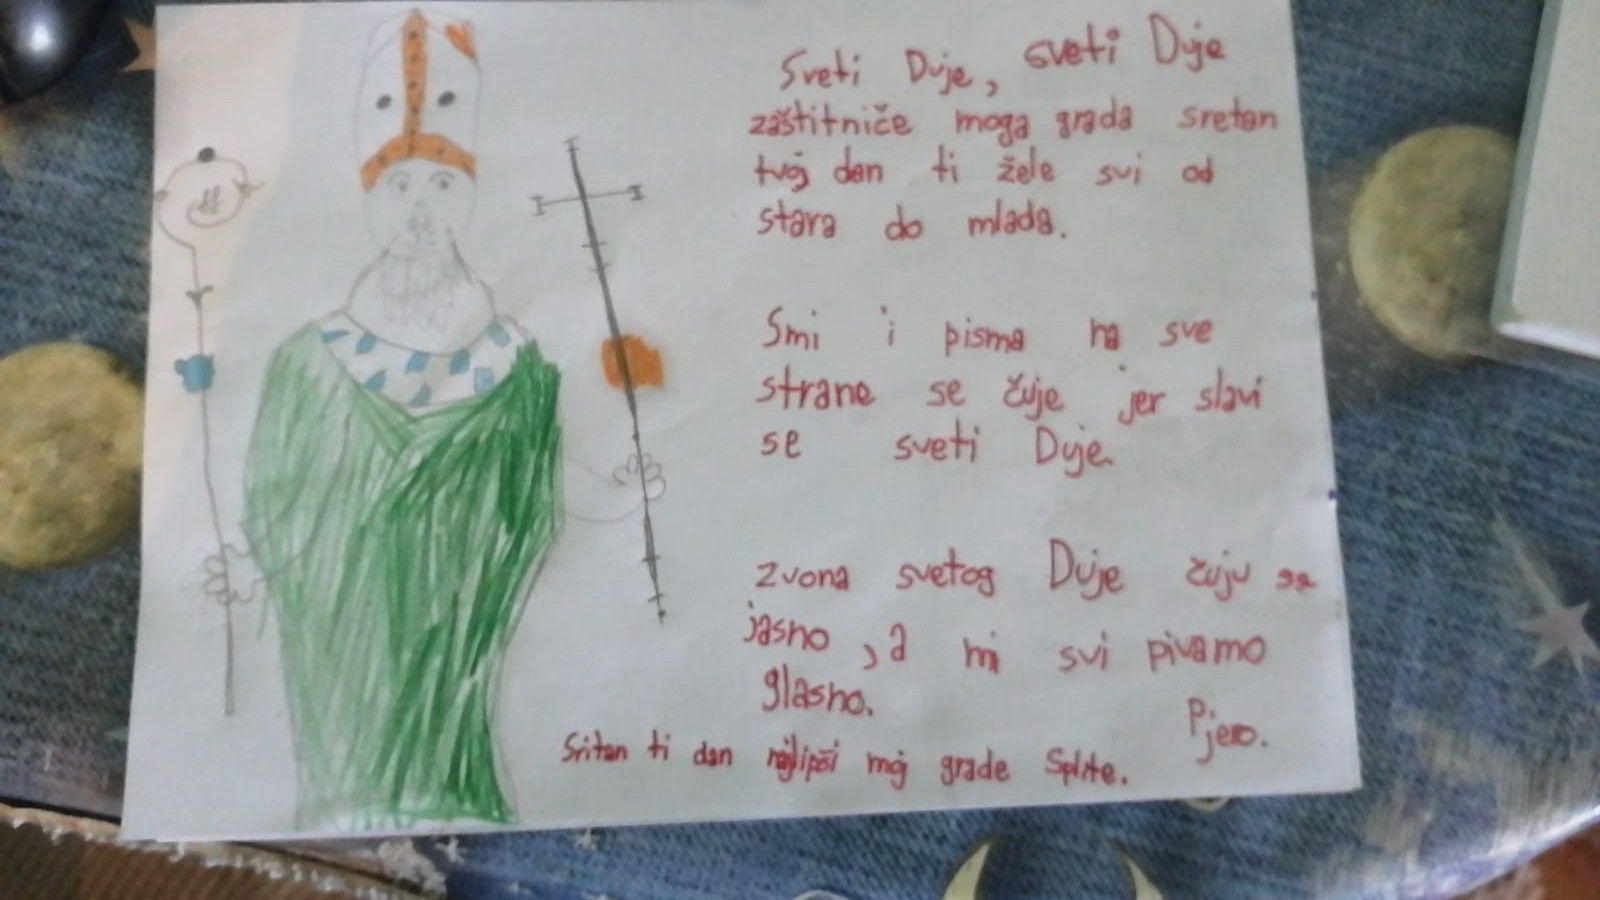 Sveti Duje, sveti Duje
zaštitniče moga grada sretan
tvoj dan ti žele svi od
stara do mlada.
Smi i pisma na sve
strane se čuje jer slavi
se sveti Duje.
zvona svetog Duje čuju se
jasno, a mi svi pivamo
glasno.
Pjero.
Sritan ti dan najlipši moj grade Splite.